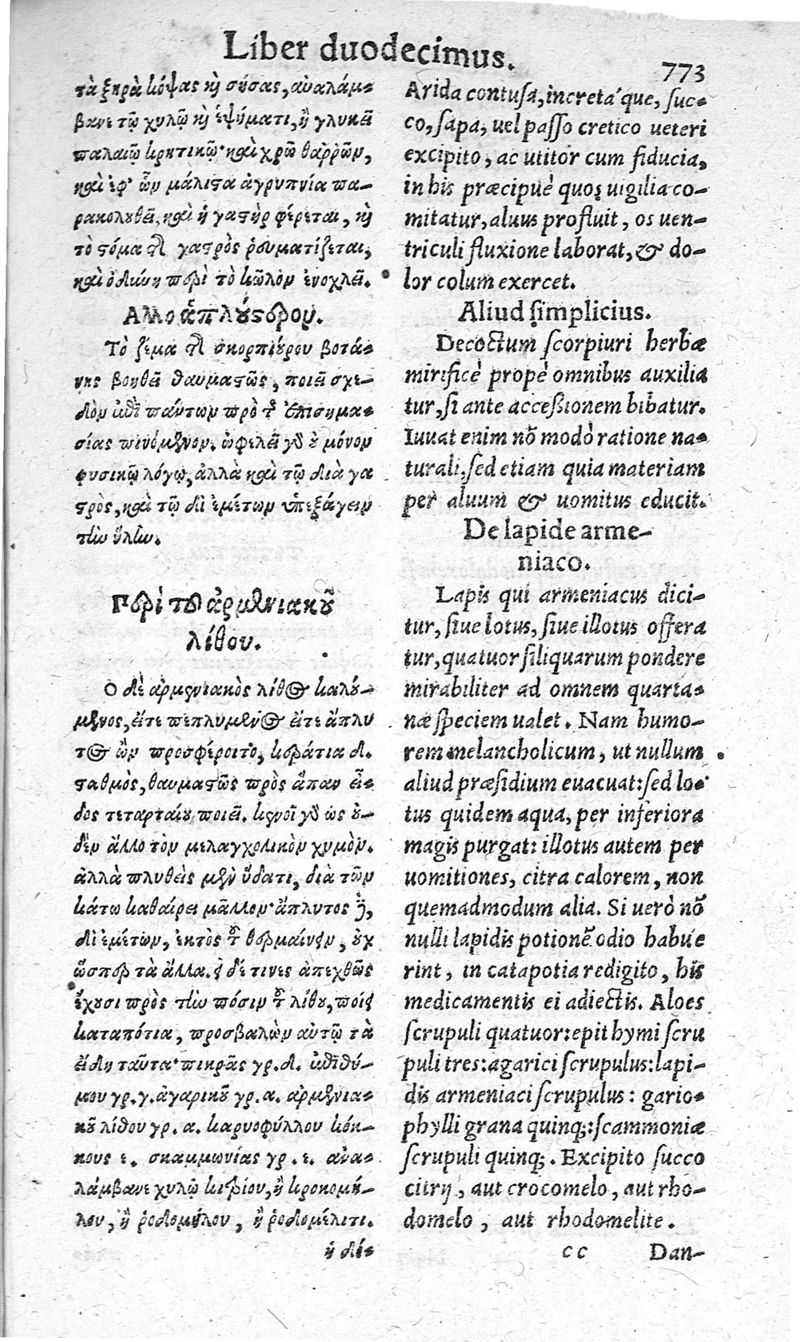 Liber duodecimus.
773
τὰ ξηρὰ κόψας καὶ σήσας, ἀναλάμ-
βανε τῷ χυλῷ καὶ ἑψήματι, ἢ γλυκεῖ
παλαιῷ κρητικῷ· καὶ χρῶ θαρρῶν,
καὶ ἐφ' ὧν μάλιστα ἀγρυπνία πα-
ρακολουθεῖ, καὶ ἡ γαστὴρ φέρεται, καὶ
τὸ στόμα τῆς γαστρὸς ῥευματίζεται,
καὶ ὀδύνη περὶ τὸ κῶλον ἐνοχλεῖ.
Αλλο ἁπλούστερον.
Τὸ ζέμα τῆς σκορπιούρου βοτά-
νης βοηθεῖ θαυμαστῶς, ποιεῖ σχε-
δὸν ἐπὶ πάντων πρὸ τῆς ἐπισημα-
σίας πινόμενον. ὠφελεῖ γὰρ οὐ μόνον
φυσικῷ λόγῳ, ἀλλὰ καὶ τῷ διὰ γα
στρὸς, καὶ τῷ δι' ἐμέτων ὑπεξάγειν
τὴν ὕλην.
Περὶ τοῦ ἀρμενιακοῦ
λίθου.
Ο δὲ ἀρμενιακὸς λίθος καλού-
μενος, εἴτε πεπλυμένος εἴτε ἄπλυ
τος ὢν προσφέροιτο, κεράτια δ.
σταθμὸς, θαυμαστῶς πρὸς ἅπαν εἶ-
δος τεταρταίου ποιεῖ. κενοῖ γὰρ ὡς οὐ-
δὲν ἄλλο τὸν μελαγχολικὸν χυμόν.
ἀλλὰ πλυθεὶς μὲν ὕδατι, διὰ τῶν
κάτω καθαίρει μᾶλλον· ἄπλυτος δὲ,
δι' ἐμέτων, ἐκτὸς τοῦ θερμαίνειν, οὐχ
ὥσπερ τὰ ἄλλα. εἰ δέ τινες ἀπεχθῶς
ἔχουσι πρὸς τὴν πόσιν τοῦ λίθου, ποίει
καταπότια, προσβαλὼν αὐτῷ τὰ
εἴδη ταῦτα· πικρᾶς γρ. δ. ἐπιθύ-
μου γρ. γ. ἀγαρικοῦ γρ. α. ἀρμενια-
κοῦ λίθου γρ. α. καρυοφύλλου κόκ-
κους ε. σκαμμωνίας γρ. ε. ἀνα-
λάμβανε χυλῷ κιτρίου, ἢ κροκομή-
λου, ἢ ῥοδομήλου, ἢ ῥοδομέλιτι.
Arida contusa, incretaque, suc-
co, sapa, uel passo cretico ueteri
excipito, ac utitor cum fiducia,
in his præcipuè quos uigilia co-
mitatur, aluus profluit, os uen-
triculi fluxione laborat, & do-
lor colum exercet.
Aliud simplicius.
Decoctum scorpiuri herbæ
mirificè propè omnibus auxilia
tur, si ante accessionem bibatur.
Iuuat enim nō modò ratione na-
turali, sed etiam quia materiam
per aluum & uomitus educit.
De lapide arme-
niaco.
Lapis qui armeniacus dici-
tur, siue lotus, siue illotus offera
tur, quatuor siliquarum pondere
mirabiliter ad omnem quarta-
næ speciem ualet. Nam humo-
rem melancholicum, ut nullum
aliud præsidium euacuat: sed lo-
tus quidem aqua, per inferiora
magis purgat: illotus autem per
uomitiones, citra calorem, non
quemadmodum alia. Si uerò nō
nulli lapidis potionē odio habue
rint, in catapotia redigito, his
medicamentis ei adiectis. Aloes
scrupuli quatuor: epithymi scru
puli tres: agarici scrupulus: lapi-
dis armeniaci scrupulus: gario-
phylli grana quinq;: scammoniæ
scrupuli quinq;. Excipito succo
citrij, aut crocomelo, aut rho-
domelo, aut rhodomelite.
ἢ δι-
cc
Dan-